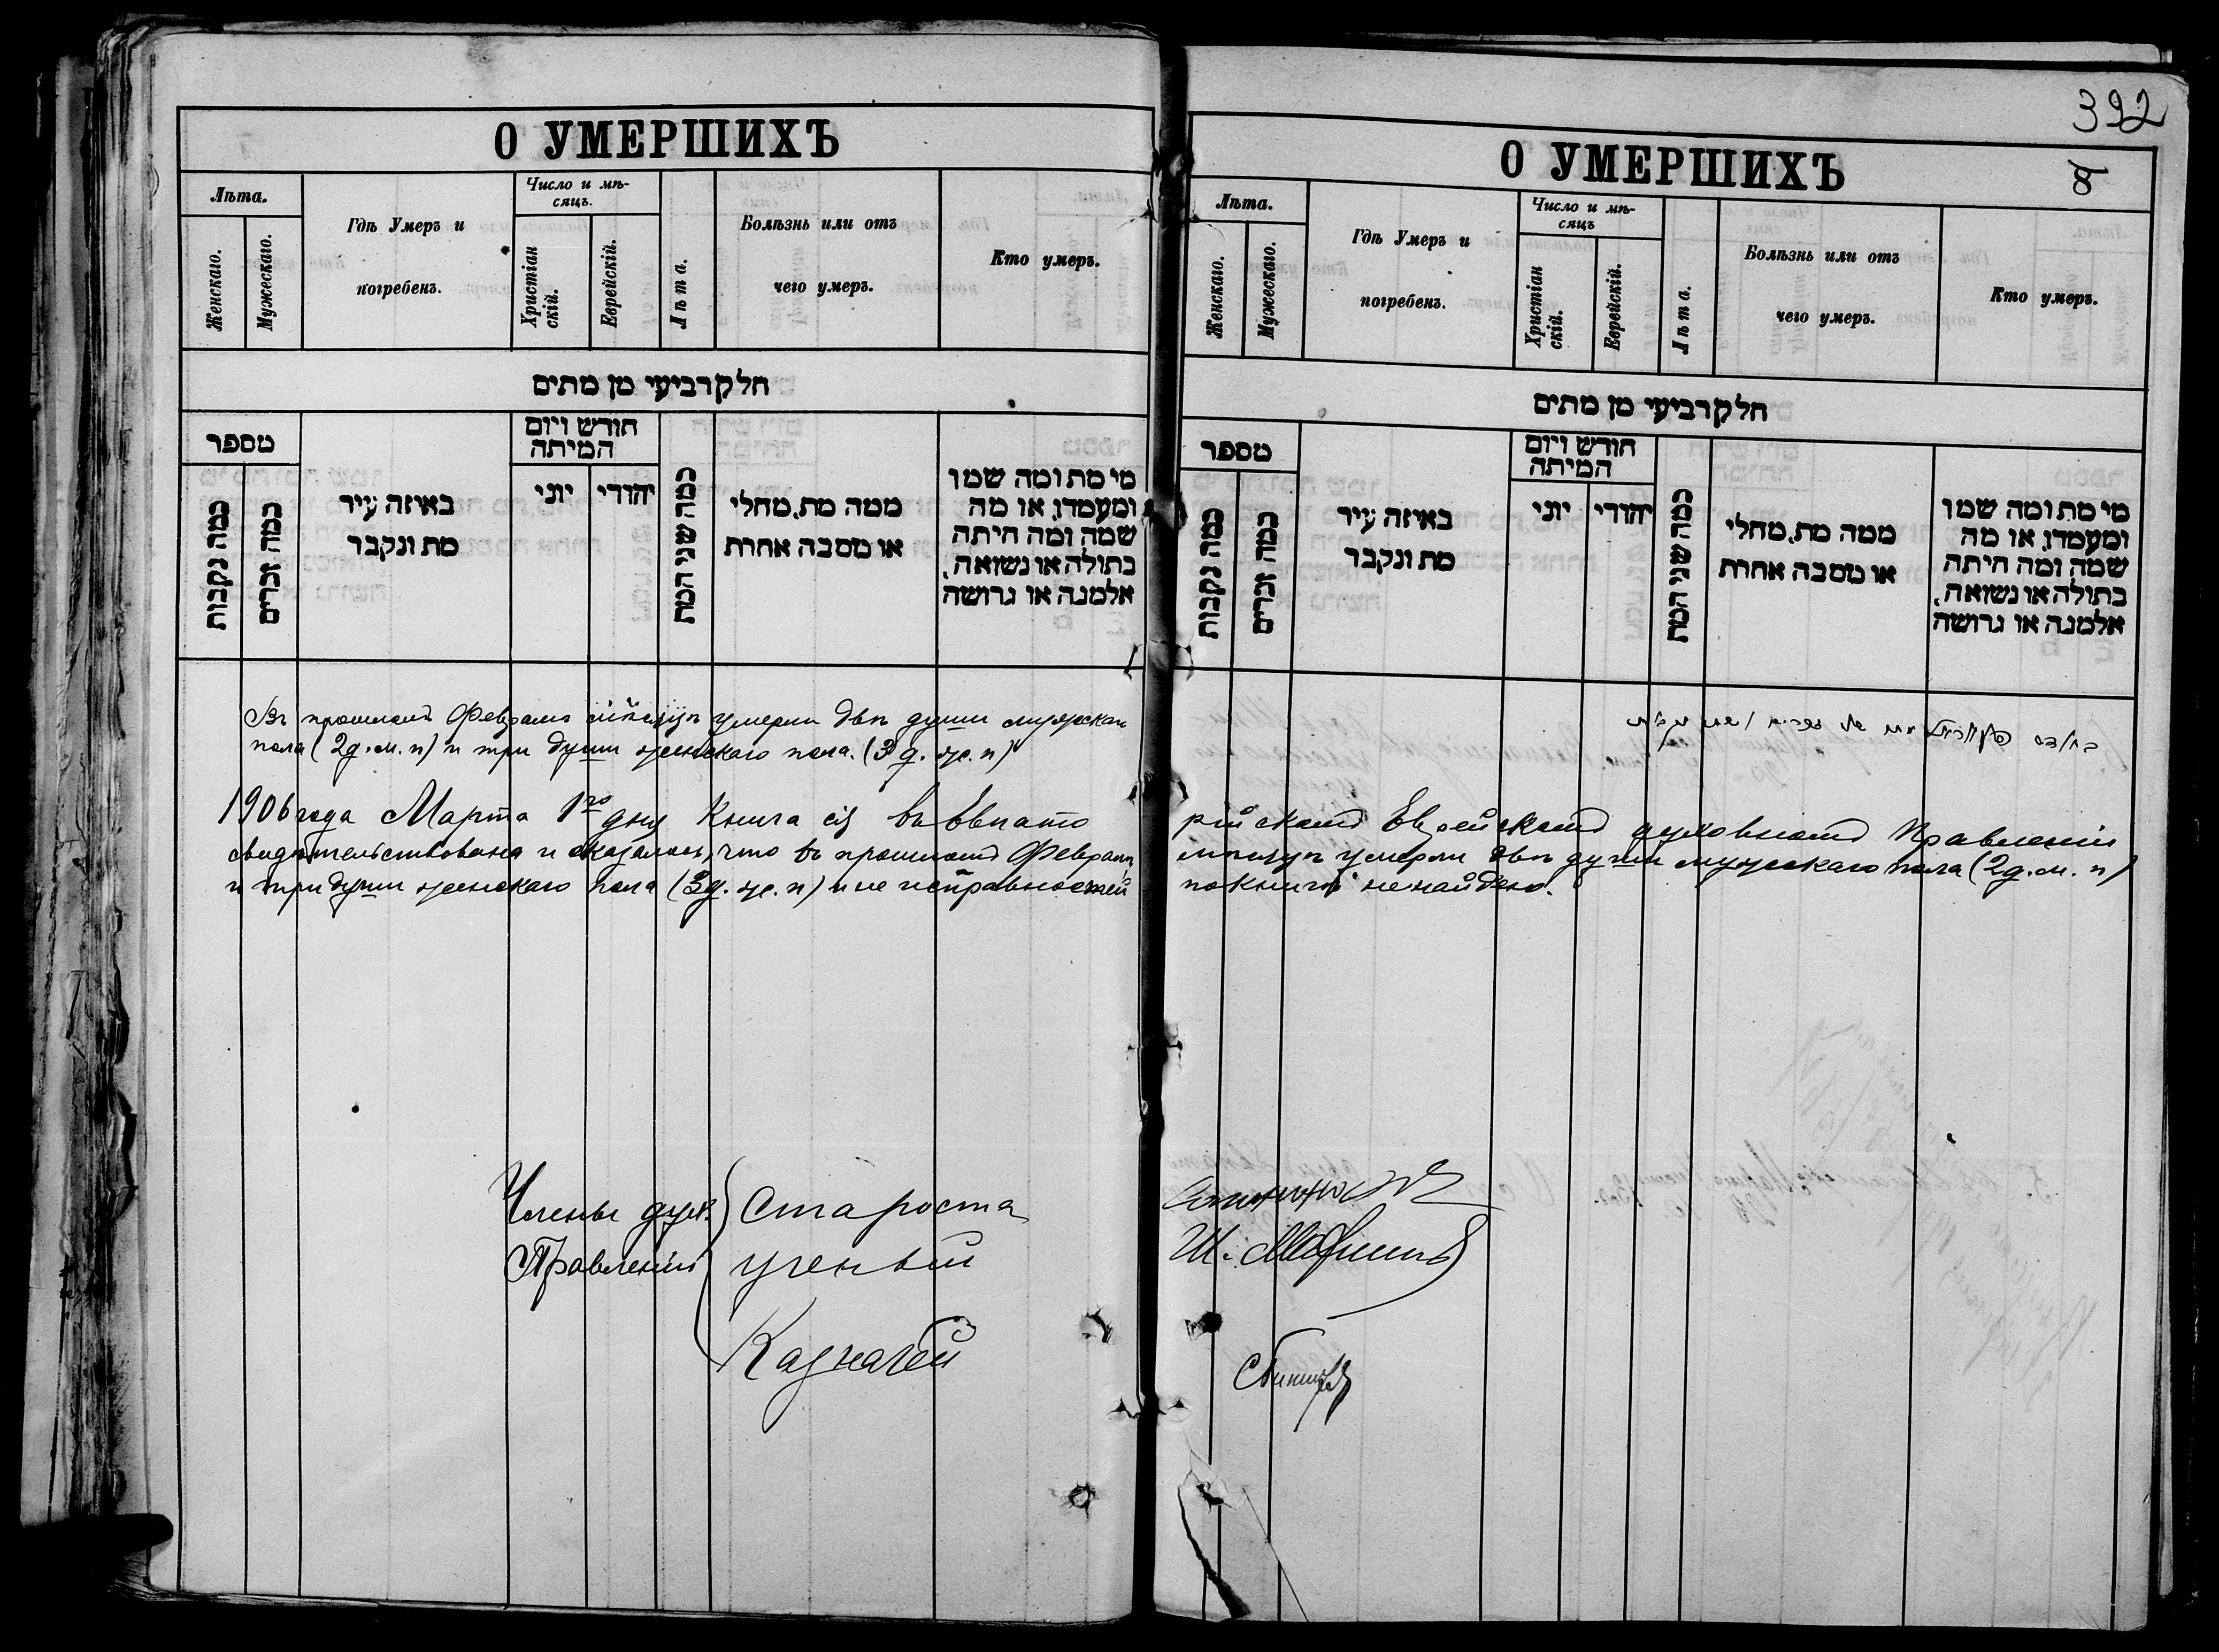 О УМЕРШИХЪ
Лѣта.
Женскаго.
Мужескаго.
Гдѣ Умеръ и
погребенъ.
Число и мѣ-
сяцъ.
Христіан
скій.
Еврейскій.
Лѣта.
Болѣзнь или отъ
чего умеръ.
Кто умеръ.
חלק רביעי מן מתים
מספר
כמה נקבות
כמה זכרים
באיזה עיר
מת ונקבר
חודש ויום
המיתה
יוני
יהודי
כמה שני המת
ממה מת, מחלי
או מסבה אחרת
מי מת ומה שמו
ומעמדו, או מה
שמה ומה היתה
בתולה או נשואה,
אלמנה או גרושה
Въ прошломъ Февралѣ мѣсяцѣ умерли двѣ души мужскаго
пола (2 д. м. п) и три души женскаго пола. (3 д. ж. п)
1906 года Марта 1го дня Книга сія въ
свидѣтельствована и оказалось, что въ прошломъ Февралѣ
и три души женскаго пола (3 д. ж. п) и не исправностей
Члены дух.
Правленія
Староста
ученый
Казначей
392
О УМЕРШИХЪ
8
Лѣта.
Женскаго.
Мужескаго.
Гдѣ Умеръ и
погребенъ.
Число и мѣ-
сяцъ
Христіан
скій.
Еврейскій.
Лѣта.
Болѣзнь или отъ
чего умеръ.
Кто умеръ.
חלק רביעי מן מתים
מספר
כמה נקבות
כמה זכרים
באיזה עיר
מת ונקבר
חודש ויום
המיתה
יוני
יהודי
כמה שני המת
ממה מת, מחלי
או מסבה אחרת
מי מת ומה שמו
ומעמדו, או מה
שמה ומה היתה
בתולה או נשואה,
אלמנה או גרושה
рійскомъ Еврейскомъ духовномъ Правленіи
мѣсяцѣ умерли двѣ души мужескаго пола (2 д. м. п)
по книгѣ не найдено.
Ш.